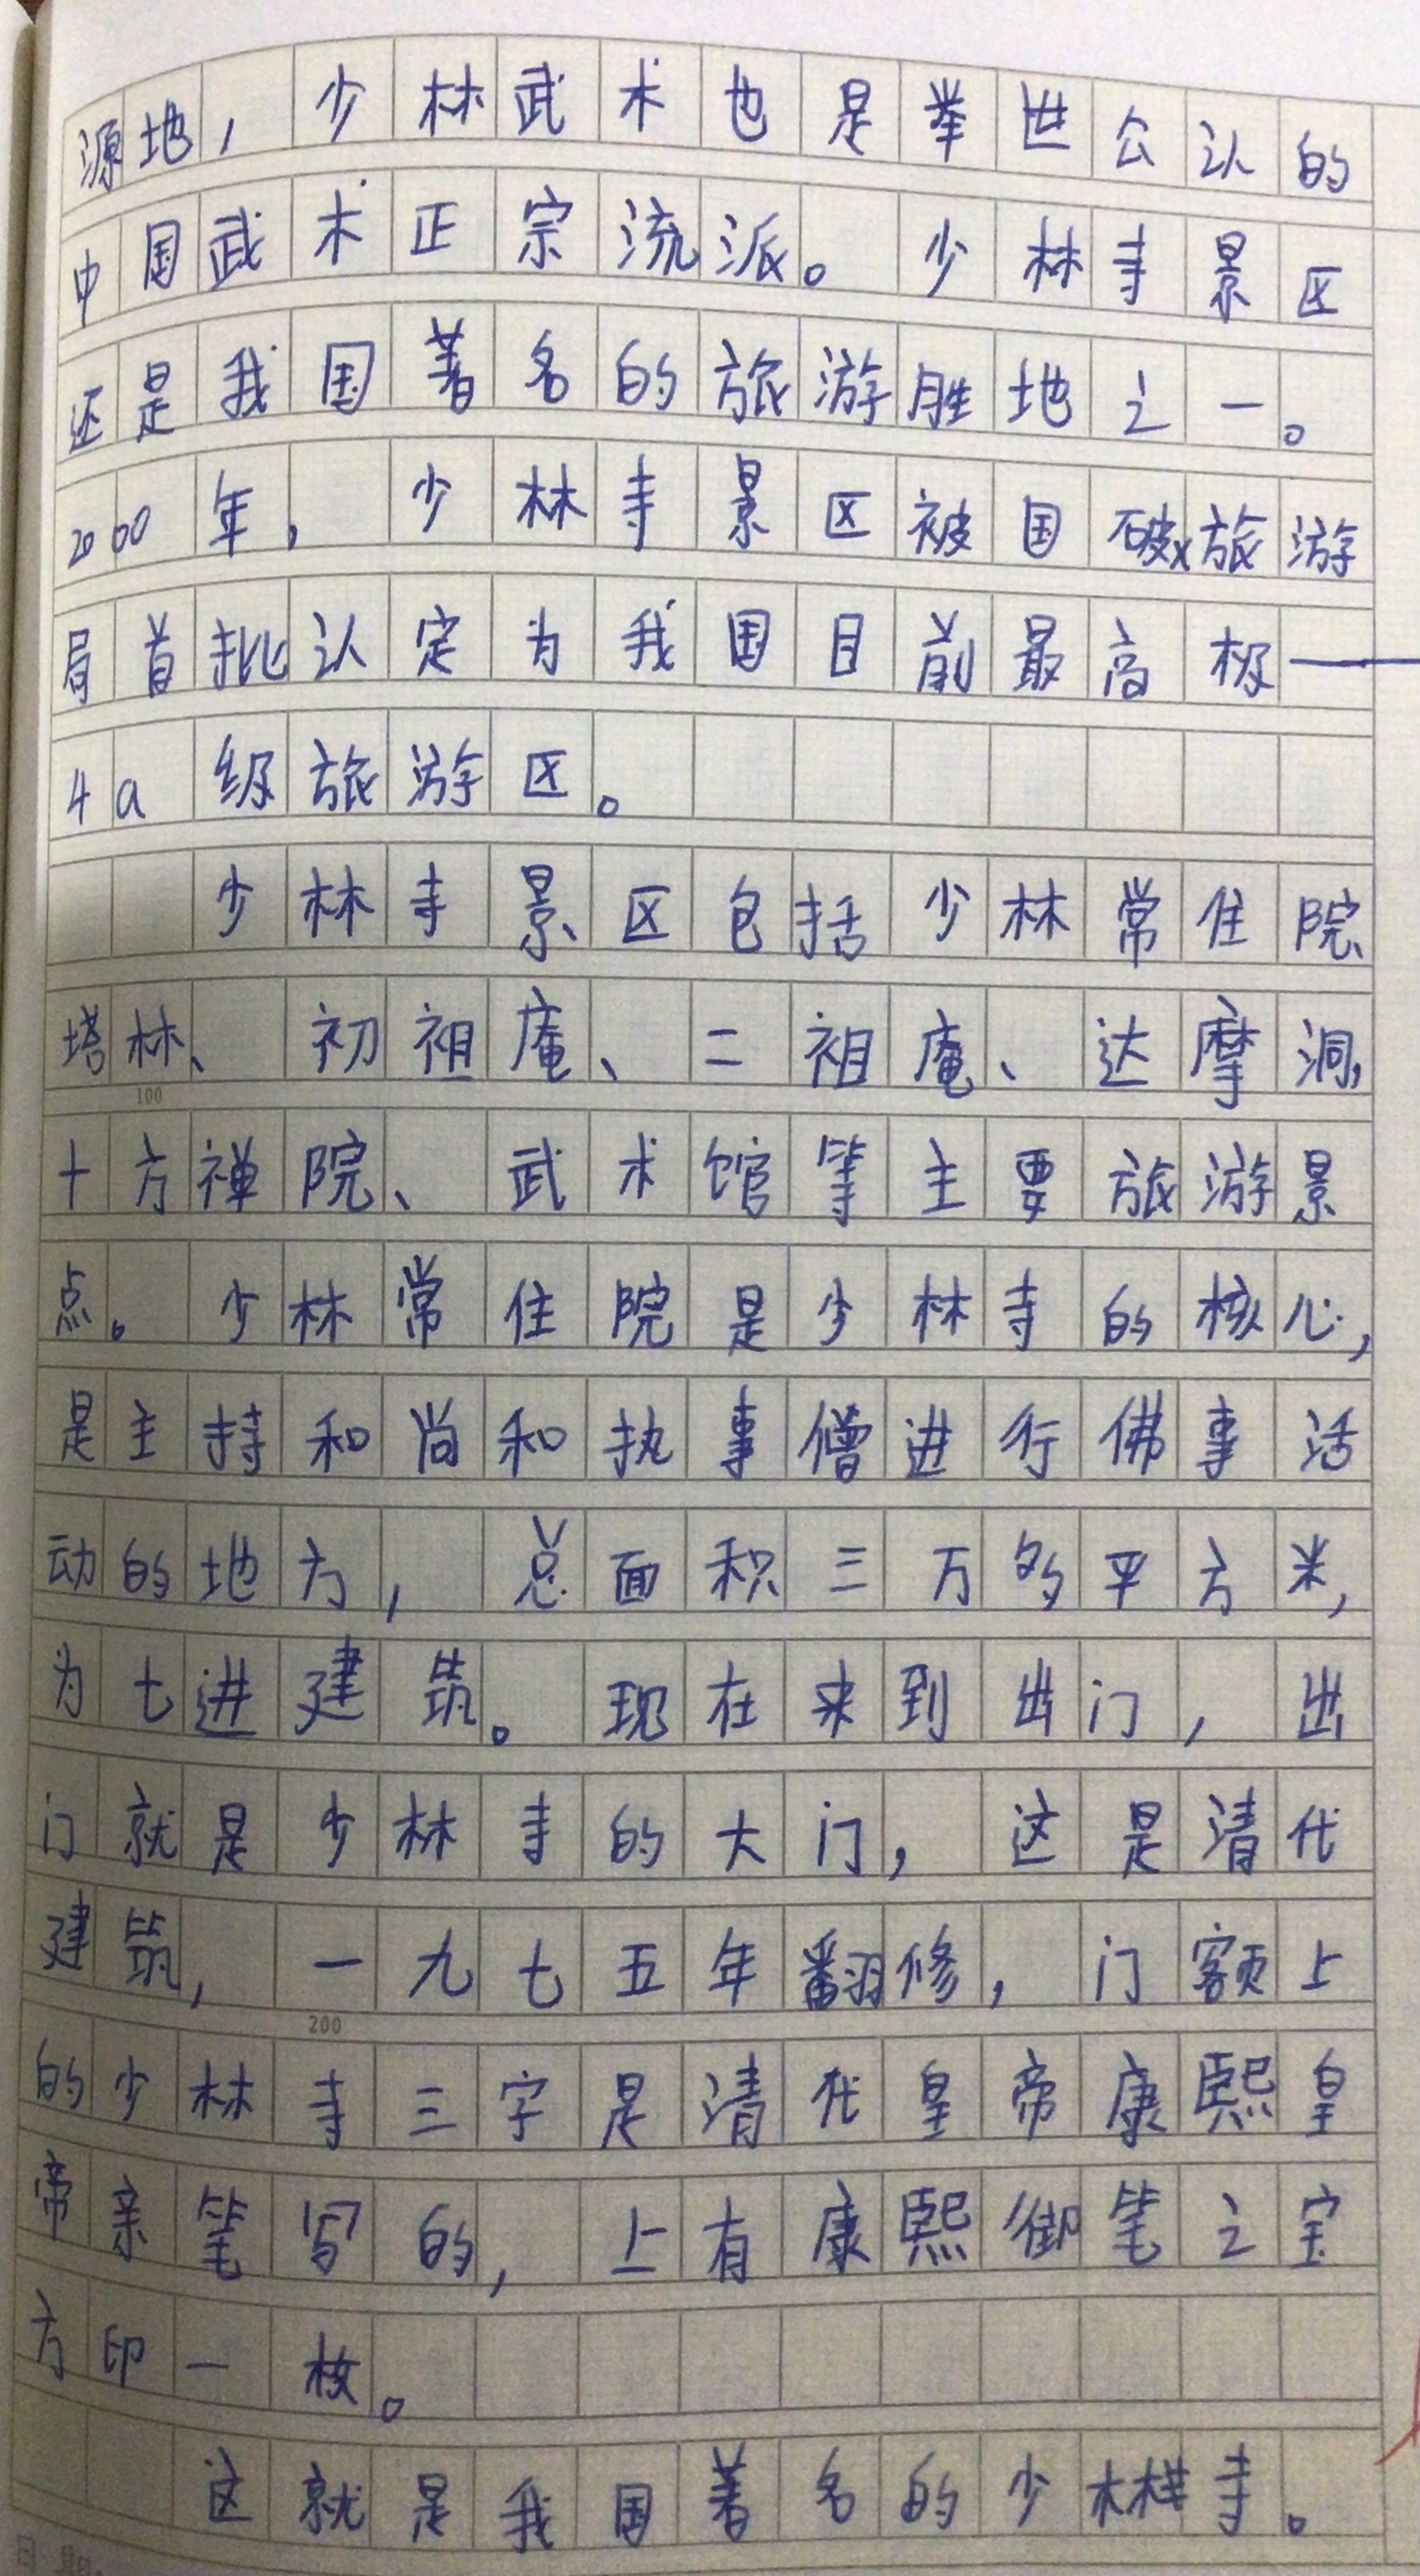 源地，少林武术也是举世公认的
中国武术正宗流派。少林寺景区
还是我国著名的旅游胜地之一。
2000年，少林寺景区被国破旅游
局首批认定为我国目前最高极——
4a级旅游区。
少林寺景区包括少林常住院、
塔林、初祖庵、二祖庵、达摩洞，
100
十方禅院、武术馆等主要旅游景
点。少林常住院是少林寺的核心，
是主持和尚和执事僧进行佛事活
动的地方，总面积三万多平方米，
为七进建筑。现在来到出门，出
门就是少林寺的大门，这是清代
建筑，一九七五年翻修，门额上
200
的少林寺三字是清代皇帝康熙皇
帝亲笔写的，上有康熙御笔之宝
方印一枚。
这就是我国著名的少林寺。
日期